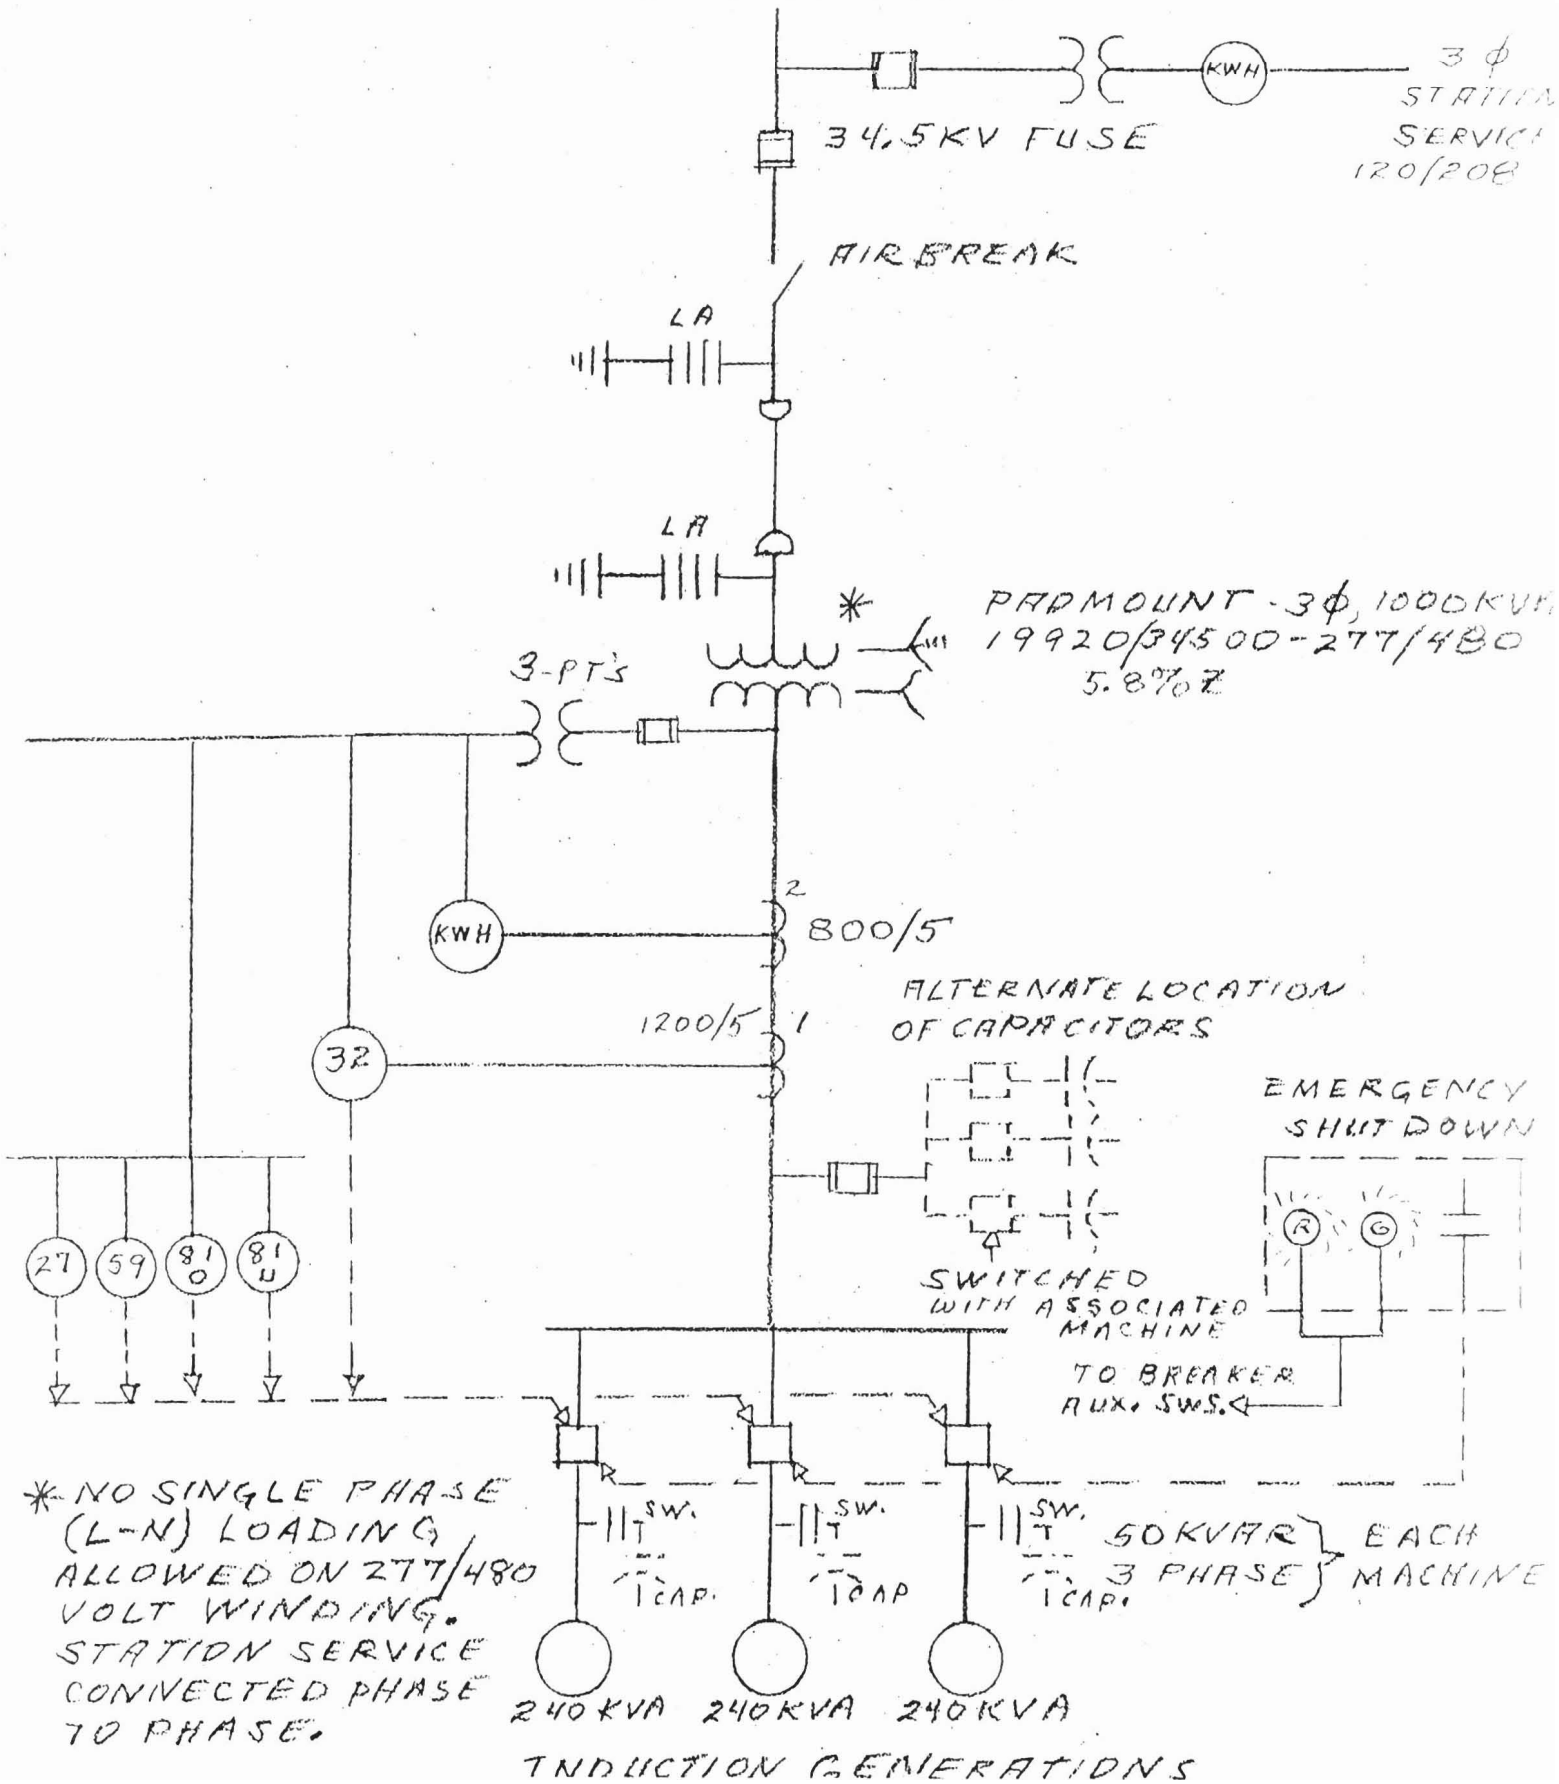 KWH
3 φ
STATION
SERVICE
120/208
34.5KV FUSE
AIR BREAK
LA
LA
*
PADMOUNT - 3φ, 1000KVA
19920/34500-277/480
5.8% Z
3-PT's
2
KWH
800/5
ALTERNATE LOCATION
OF CAPACITORS
1200/5
1
32
EMERGENCY
SHUT DOWN
R
G
27
59
81
O
81
U
SWITCHED
WITH ASSOCIATED
MACHINE
TO BREAKER
AUX. SWS.
* NO SINGLE PHASE
(L-N) LOADING
ALLOWED ON 277/480
VOLT WINDING.
STATION SERVICE
CONNECTED PHASE
TO PHASE.
SW.
CAP.
SW.
CAP
SW.
CAP.
50 KVAR } EACH
3 PHASE } MACHINE
240 KVA 240 KVA 240 KVA
INDUCTION GENERATIONS